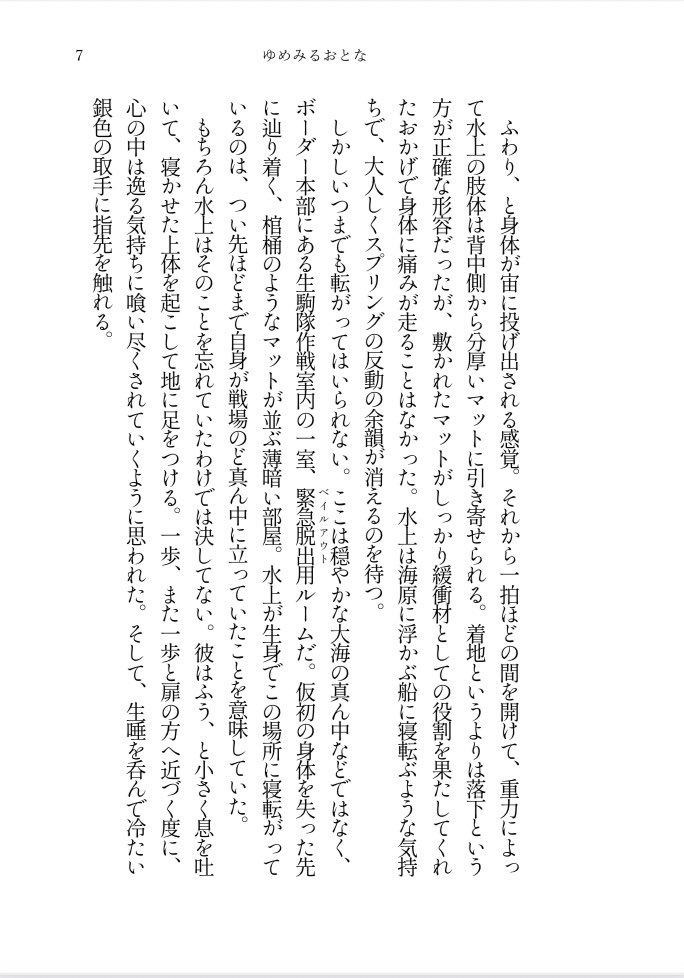 7
ゆめみるおとな
ふわり、と身体が宙に投げ出される感覚。それから一拍ほどの間を開けて、重力によっ
て水上の肢体は背中側から分厚いマットに引き寄せられる。着地というよりは落下という
方が正確な形容だったが、敷かれたマットがしっかり緩衝材としての役割を果たしてくれ
たおかげで身体に痛みが走ることはなかった。水上は海原に浮かぶ船に寝転ぶような気持
ちで、大人しくスプリングの反動の余韻が消えるのを待つ。
しかしいつまでも転がってはいられない。ここは穏やかな大海の真ん中などではなく、
ボーダー本部にある生駒隊作戦室内の一室、緊急脱出用ルームだ。仮初の身体を失った先
ベイルアウト
に辿り着く、棺桶のようなマットが並ぶ薄暗い部屋。水上が生身でこの場所に寝転がって
いるのは、つい先ほどまで自身が戦場のど真ん中に立っていたことを意味していた。
もちろん水上はそのことを忘れていたわけでは決してない。彼はふう、と小さく息を吐
いて、寝かせた上体を起こして地に足をつける。一歩、また一歩と扉の方へ近づく度に、
心の中は逸る気持ちに喰い尽くされていくように思われた。そして、生唾を呑んで冷たい
銀色の取手に指先を触れる。